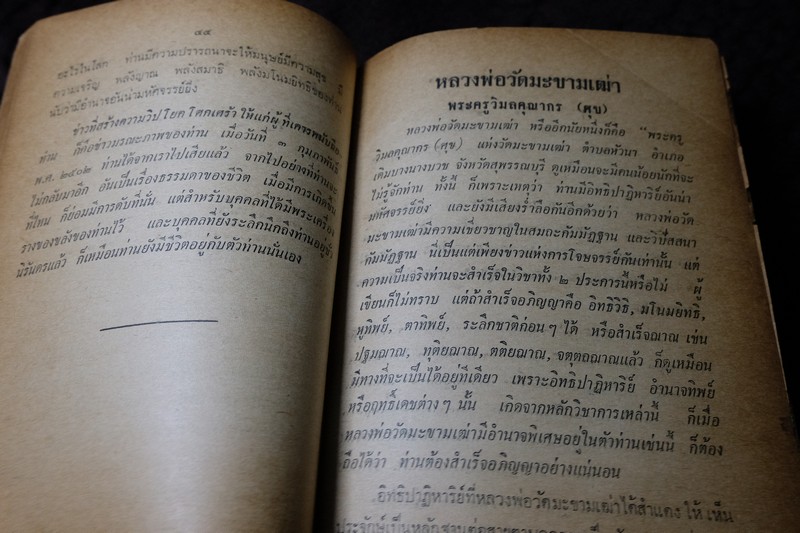 ๔๔
อะไรในโลก ท่านมีความปรารถนาจะให้มนุษย์มีความสุข มี
ความเจริญ พลังญาณ พลังสมาธิ พลังมโนมยิทธิของท่าน
นับว่ามีอำนาจอันน่ามหัศจรรย์ยิ่ง
ข่าวที่สร้างความวิปโยคโศกเศร้า ให้แก่ผู้ที่เคารพนับถือ
ท่าน ก็คือข่าวมรณะภาพของท่าน เมื่อวันที่ ๓ กุมภาพันธ์
พ.ศ. ๒๕๐๒ ท่านได้จากเราไปเสียแล้ว จากไปอย่างที่ท่านจะ
ไม่กลับมาอีก อันเป็นเรื่องธรรมดาของชีวิต เมื่อมีการเกิดขึ้น
ที่ไหน ก็ย่อมมีการดับที่นั่น แต่สำหรับบุคคลที่ได้มีพระเครื่อง
รางของขลังของท่านไว้ และบุคคลที่ยังระลึกนึกถึงท่านอยู่ชั่ว
นิรันดรแล้ว ก็เหมือนท่านยังมีชีวิตอยู่กับตัวท่านนั่นเอง
หลวงพ่อวัดมะขามเฒ่า
พระครูวิมลคุณากร (ศุข)
หลวงพ่อวัดมะขามเฒ่า หรืออีกนัยหนึ่งก็คือ "พระครู
วิมลคุณากร (ศุข) แห่งวัดมะขามเฒ่า ตำบลหัวนา อำเภอ
เดิมบางนางบวช จังหวัดสุพรรณบุรี ดูเหมือนจะมีคนน้อยนักที่จะ
ไม่รู้จักท่าน ทั้งนี้ ก็เพราะเหตุว่า ท่านมีอิทธิปาฏิหาริย์อันน่า
มหัศจรรย์ยิ่ง และยังมีเสียงร่ำลือกันอีกด้วยว่า หลวงพ่อวัด
มะขามเฒ่ามีความเชี่ยวชาญในสมถะกัมมัฏฐาน และวิปัสสนา
กัมมัฏฐาน นี่เป็นแต่เพียงข่าวแห่งการโจษจรรย์กันเท่านั้น แต่
ความเป็นจริงท่านจะสำเร็จในวิชาทั้ง ๒ ประการนี้หรือไม่ ผู้
เขียนก็ไม่ทราบ แต่ถ้าสำเร็จอภิญญาคือ อิทธิวิธิ, มโนมยิทธิ,
หูทิพย์, ตาทิพย์, ระลึกชาติก่อนๆ ได้ หรือสำเร็จฌาณ เช่น
ปฐมฌาณ, ทุติยฌาณ, ตติยฌาณ, จตุตถฌาณแล้ว ก็ดูเหมือน
มีทางที่จะเป็นได้อยู่ทีเดียว เพราะอิทธิปาฏิหาริย์ อำนาจทิพย์
หรือฤทธิ์เดชต่างๆ นั้น เกิดจากหลักวิชาการเหล่านี้ ก็เมื่อ
หลวงพ่อวัดมะขามเฒ่ามีอำนาจพิเศษอยู่ในตัวท่านเช่นนี้ ก็ต้อง
ถือได้ว่า ท่านต้องสำเร็จอภิญญาอย่างแน่นอน
อิทธิปาฏิหาริย์ที่หลวงพ่อวัดมะขามเฒ่าได้สำแดง ให้ เห็น
ประจักษ์เป็นหลักฐานต่อสายตา